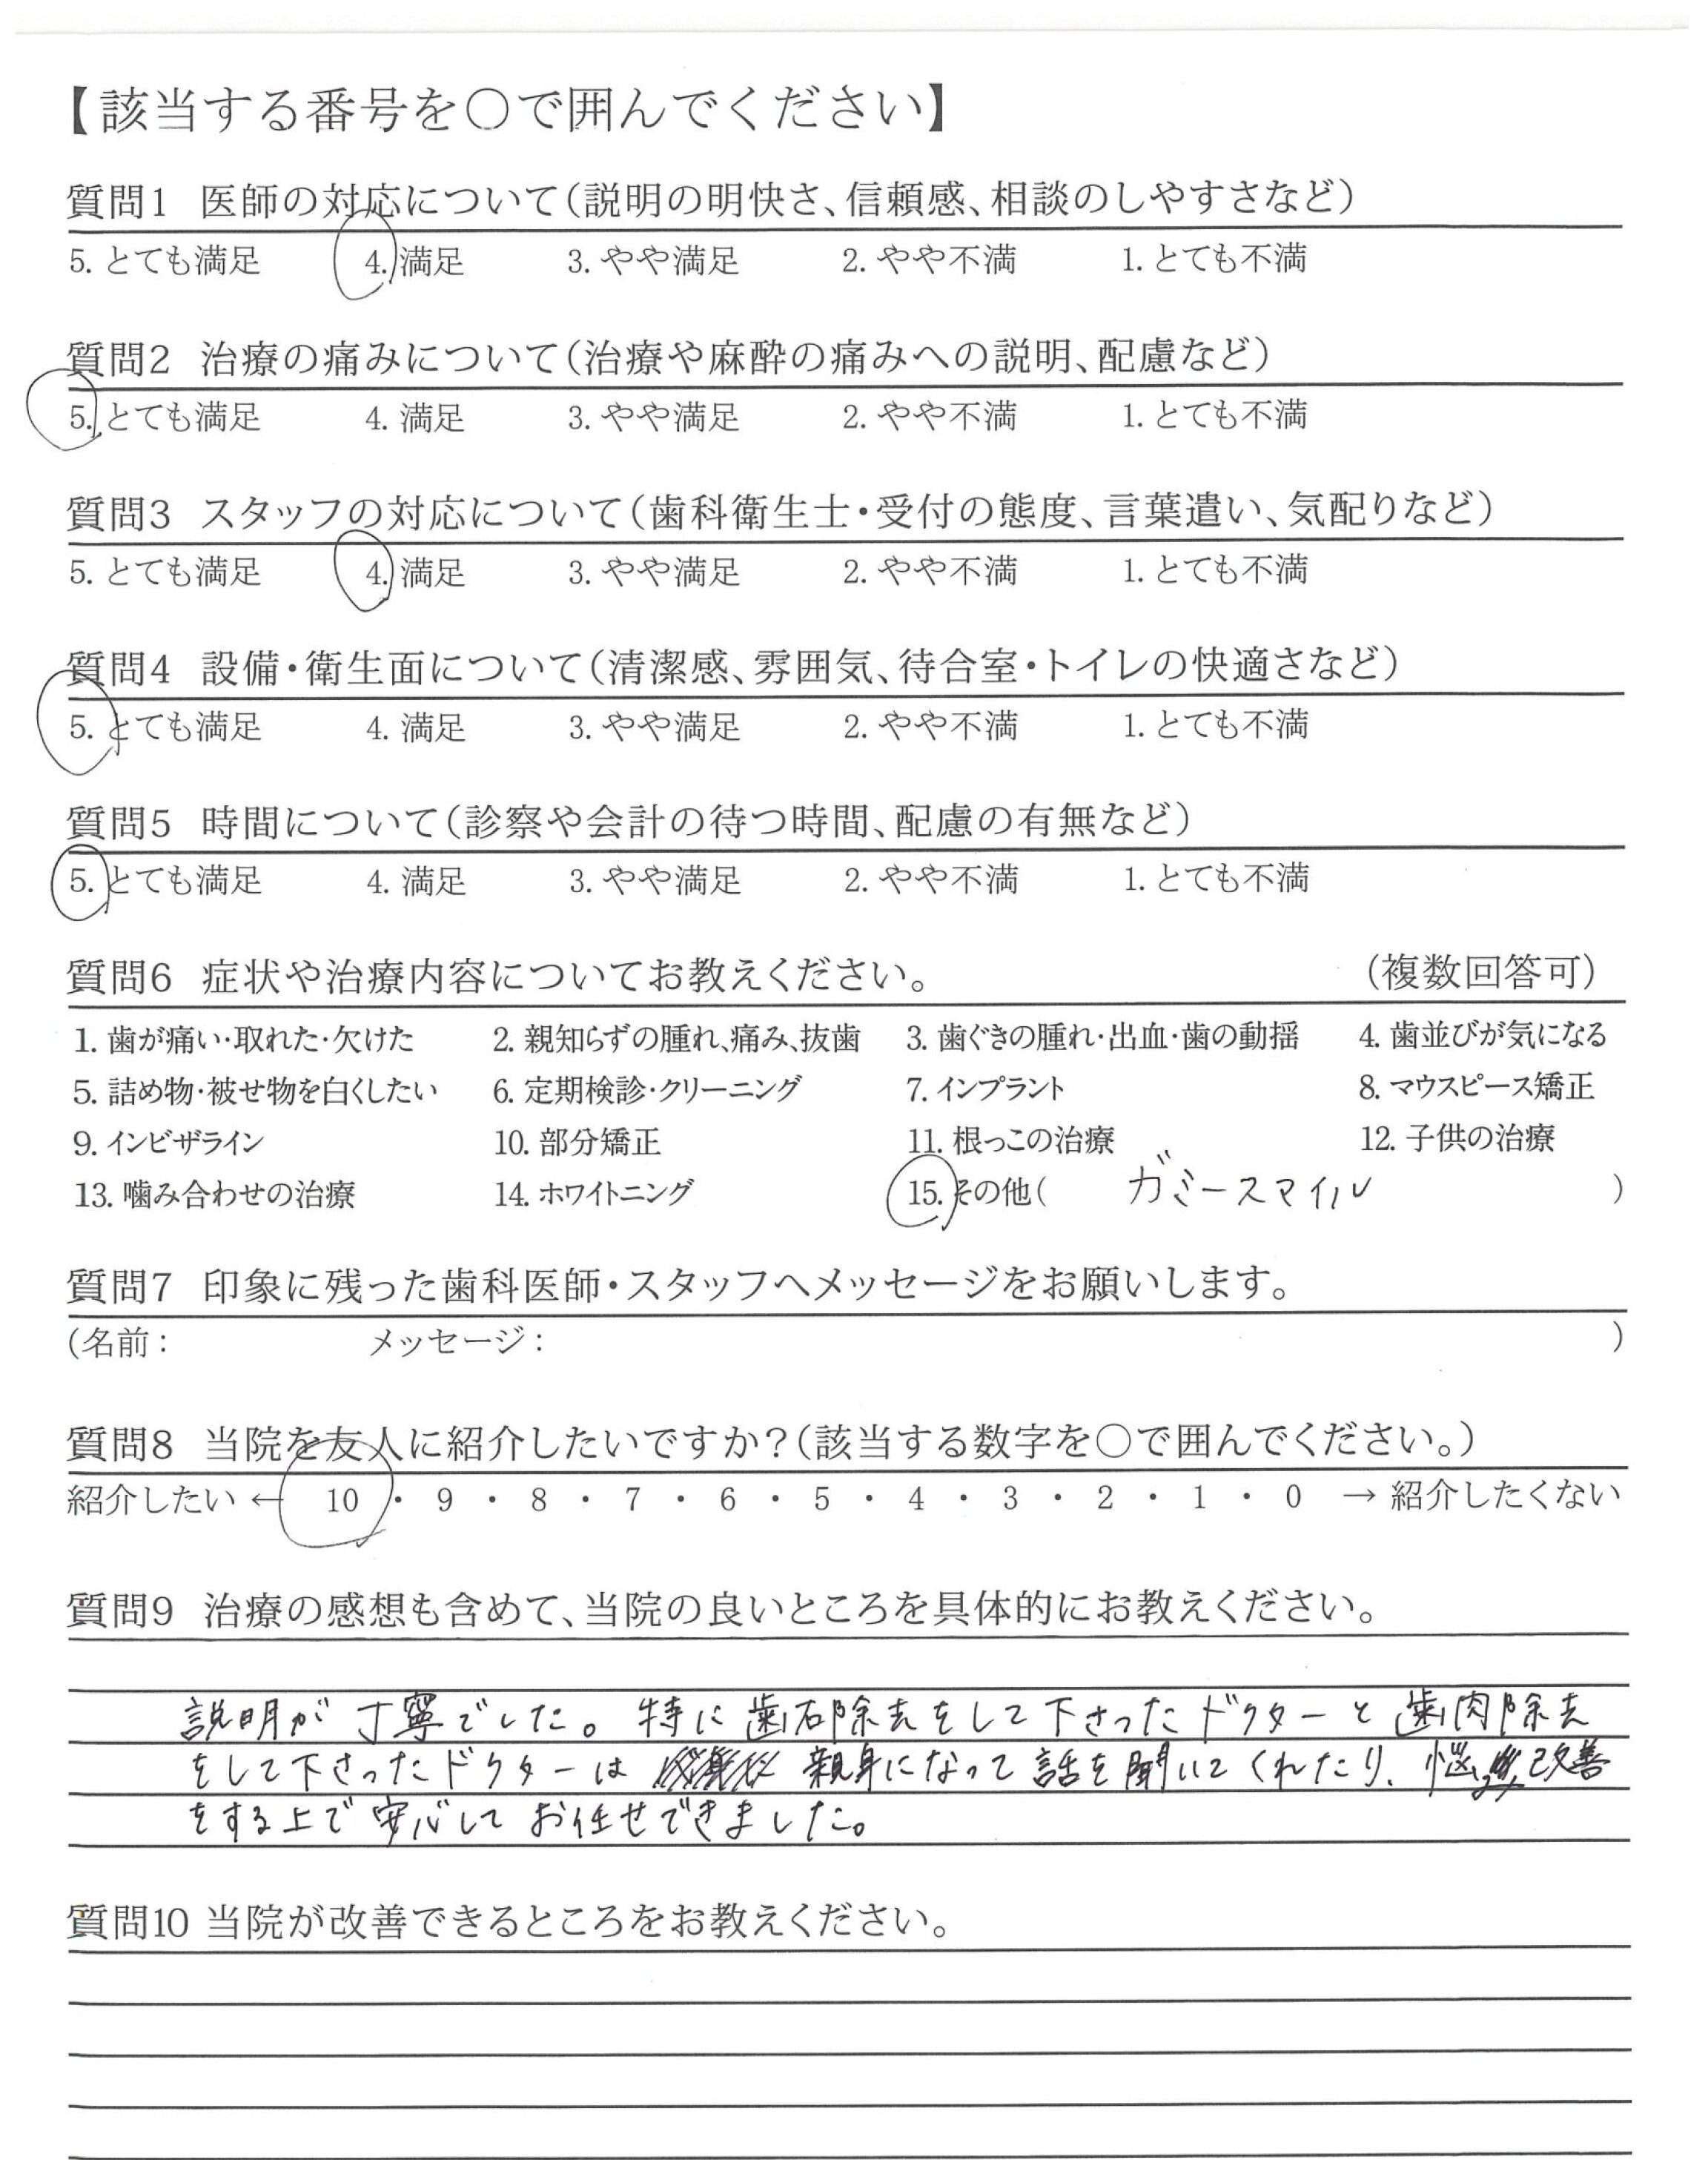 【該当する番号を○で囲んでください】
質問1 医師の対応について(説明の明快さ、信頼感、相談のしやすさなど)
5. とても満足 4. 満足 3. やや満足 2. やや不満 1. とても不満
質問2 治療の痛みについて(治療や麻酔の痛みへの説明、配慮など)
5. とても満足 4. 満足 3. やや満足 2. やや不満 1. とても不満
質問3 スタッフの対応について(歯科衛生士・受付の態度、言葉遣い、気配りなど)
5. とても満足 4. 満足 3. やや満足 2. やや不満 1. とても不満
質問4 設備・衛生面について(清潔感、雰囲気、待合室・トイレの快適さなど)
5. とても満足 4. 満足 3. やや満足 2. やや不満 1. とても不満
質問5 時間について(診察や会計の待つ時間、配慮の有無など)
5. とても満足 4. 満足 3. やや満足 2. やや不満 1. とても不満
質問6 症状や治療内容についてお教えください。 (複数回答可)
1. 歯が痛い・取れた・欠けた 2. 親知らずの腫れ、痛み、抜歯 3. 歯ぐきの腫れ・出血・歯の動揺 4. 歯並びが気になる
5. 詰め物・被せ物を白くしたい 6. 定期検診・クリーニング 7. インプラント 8. マウスピース矯正
9. インビザライン 10. 部分矯正 11. 根っこの治療 12. 子供の治療
13. 噛み合わせの治療 14. ホワイトニング 15. その他( ガミースマイル )
質問7 印象に残った歯科医師・スタッフへメッセージをお願いします。
(名前: メッセージ: )
質問8 当院を友人に紹介したいですか?(該当する数字を○で囲んでください。)
紹介したい ← 10 ・ 9 ・ 8 ・ 7 ・ 6 ・ 5 ・ 4 ・ 3 ・ 2 ・ 1 ・ 0 → 紹介したくない
質問9 治療の感想も含めて、当院の良いところを具体的にお教えください。
説明が丁寧でした。特に歯石除去をして下さったドクターと歯肉除去
をして下さったドクターは 親身になって話を聞いてくれたり、悩 改善
をする上で安心してお任せできました。
質問10 当院が改善できるところをお教えください。